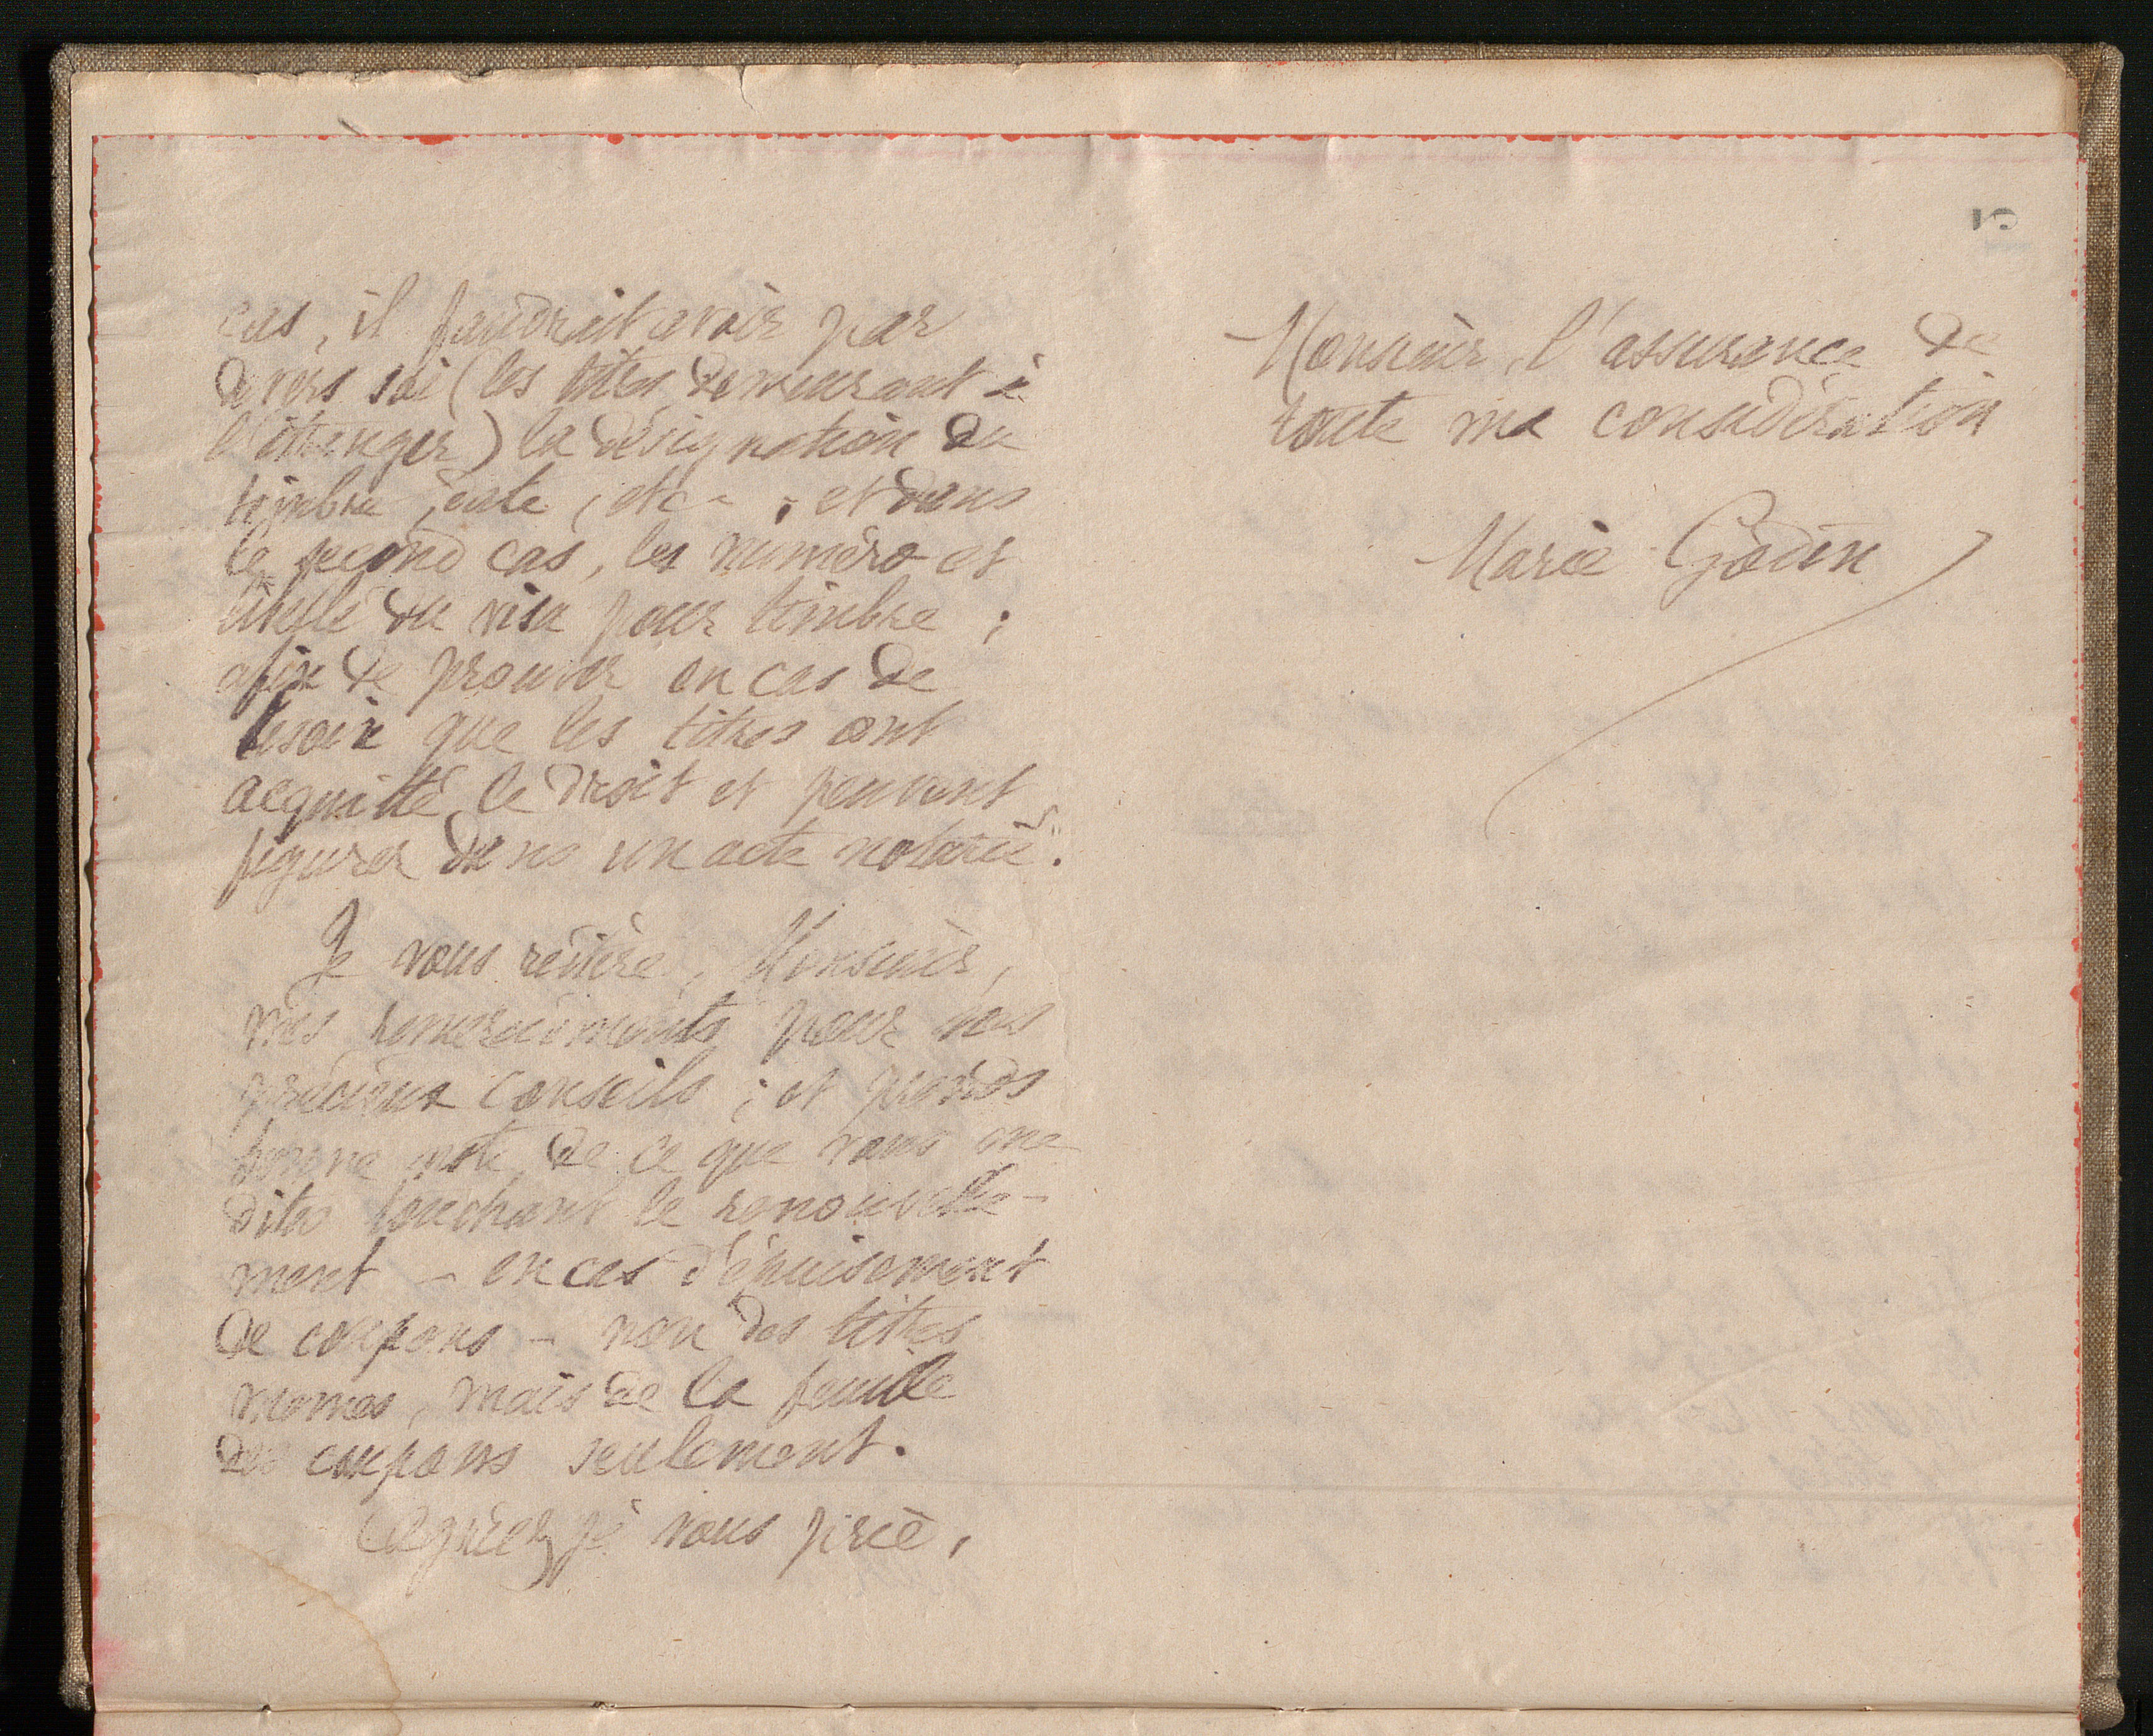 cas, il faudrait avoir par
devers soi (les titres demeurant à
l'étranger) la désignation du
timbre, date, etc - ; et dans
le second cas, les numéro et
libellé du visa pour timbre ;
afin de prouver en cas de
besoin que les titres ont
acquitté le droit et peuvent
figurer dans un acte notarié".
Je vous réitère, Monsieur,
mes remerciements pour vos
précieux conseils ; et prends
bonne note de ce que vous me
dites touchant le renouvelle-
ment - en cas d'épuisement
de coupons - non des titres
mêmes, mais de la feuille
de coupons seulement.
Agréez je vous prie,
5
Monsieur, l'assurance de
toute ma considération
Marie Godin